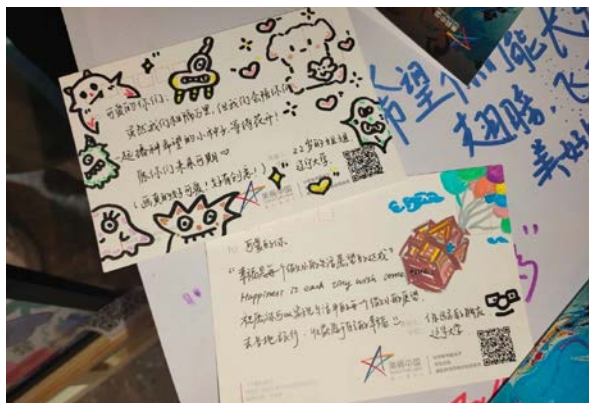 可爱的你们：
虽然我们相隔万里，但我们会陪你们
一起播种希望的小种子，等待花开！
愿你们未来可期♡
（画真的好可爱！好有创意！）
22岁的姐姐
辽宁大学
美丽中国
可爱的你：
“幸福是每个微小的生活愿望的达成”
Happiness is each tiny wish come
祝愿你可以实现生活中的每一个微小的愿望，
去各地旅行，收获属于自己的幸福
辽宁大学
美丽中国
希望你们能长
翅膀，飞
美好